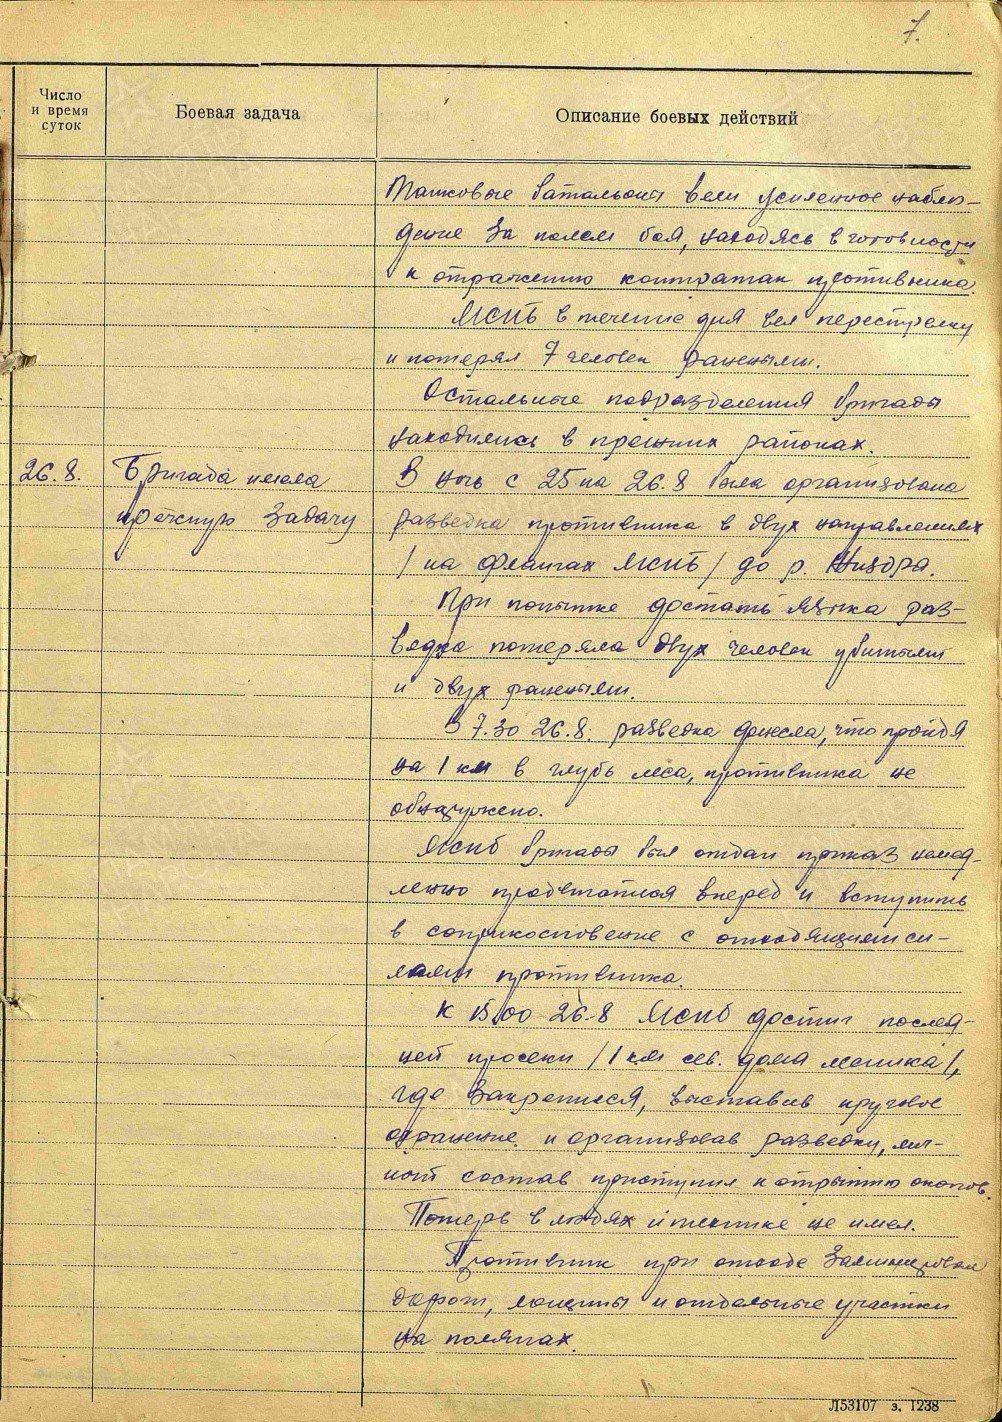 7.
Число
и время
суток
Боевая задача
Описание боевых действий
Танковые батальоны вели усиленное наблю-
дение за полем боя, находясь в готовности
к отражению контратак противника.
МСПБ в течение дня вел перестрелку
и потерял 7 человек ранеными.
Остальные подразделения бригады
находились в прежних районах.
26.8.
Бригада имела
прежнюю задачу
В ночь с 25 на 26.8 была организована
разведка противника в двух направлениях
/ на флангах МСПБ / до р. Жиздра.
При попытке достать языка раз-
ведка потеряла двух человек убитыми
и двух ранеными.
В 7.30 26.8. разведка донесла, что пройдя
на 1 км в глубь леса, противника не
обнаружено.
МСПБ бригады был отдан приказ немед-
ленно продвигаться вперед и вступить
в соприкосновение с отходящими си-
лами противника.
К 15.00 26.8 МСПБ достиг послед-
ней просеки / 1 км сев. дома лесника /,
где закрепился, выставив круговое
охранение и организовав разведку, лич-
ный состав приступил к отрытию окопов.
Потерь в людях и технике не имел.
Противник при отходе заминировал
дороги, лощины и отдельные участки
на полянах.
Л53107 з. 1238